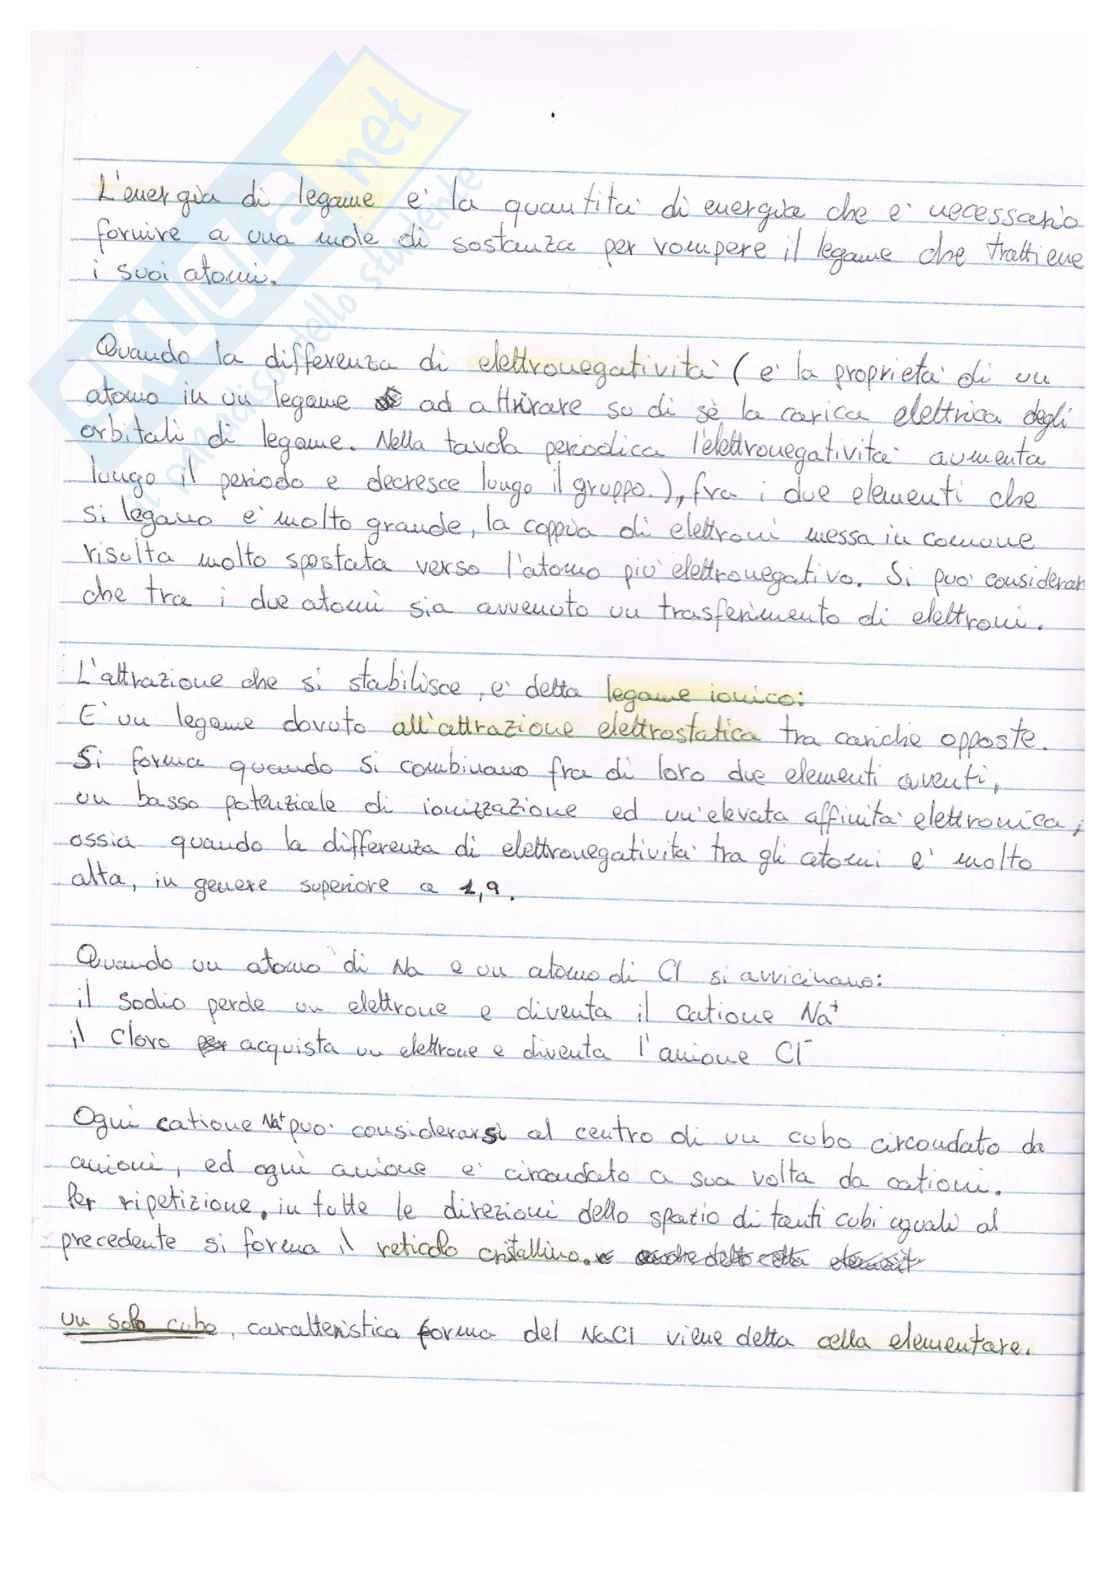 SKUOLA.net
il paradiso dello studente
L'energia di legame e' la quantita' di energia che e' necessario
fornire a una mole di sostanza per rompere il legame che trattiene
i suoi atomi.
Quando la differenza di elettronegativita' (e' la proprieta' di un
atomo in un legame ad attirare su di sè la carica elettrica degli
orbitali di legame. Nella tavola periodica l'elettronegativita' aumenta
lungo il periodo e decresce lungo il gruppo.), fra i due elementi che
si legano e' molto grande, la coppia di elettroni messa in comune
risulta molto spostata verso l'atomo piu' elettronegativo. Si puo' considerar
che tra i due atomi sia avvenuto un trasferimento di elettroni.
L'attrazione che si stabilisce, e' detta legame ionico:
E' un legame dovuto all'attrazione elettrostatica tra cariche opposte.
Si forma quando si combinano fra di loro due elementi aventi,
un basso potenziale di ionizzazione ed un'elevata affinita' elettronica,
ossia quando la differenza di elettronegativita' tra gli atomi e' molto
alta, in genere superiore a 1,9.
Quando un atomo di Na e un atomo di Cl si avvicinano:
il sodio perde un elettrone e diventa il catione Na⁺
il Cloro per acquista un elettrone e diventa l'anione Cl⁻
Ogni catione Na⁺ puo' considerarsi al centro di un cubo circondato da
anioni, ed ogni anione e' circondato a sua volta da cationi.
Per ripetizione, in tutte le direzioni dello spazio di tanti cubi uguali al
precedente si forma il reticolo cristallino. e anche detto cella
un solo cubo, caratteristica forma del NaCl viene detta cella elementare.